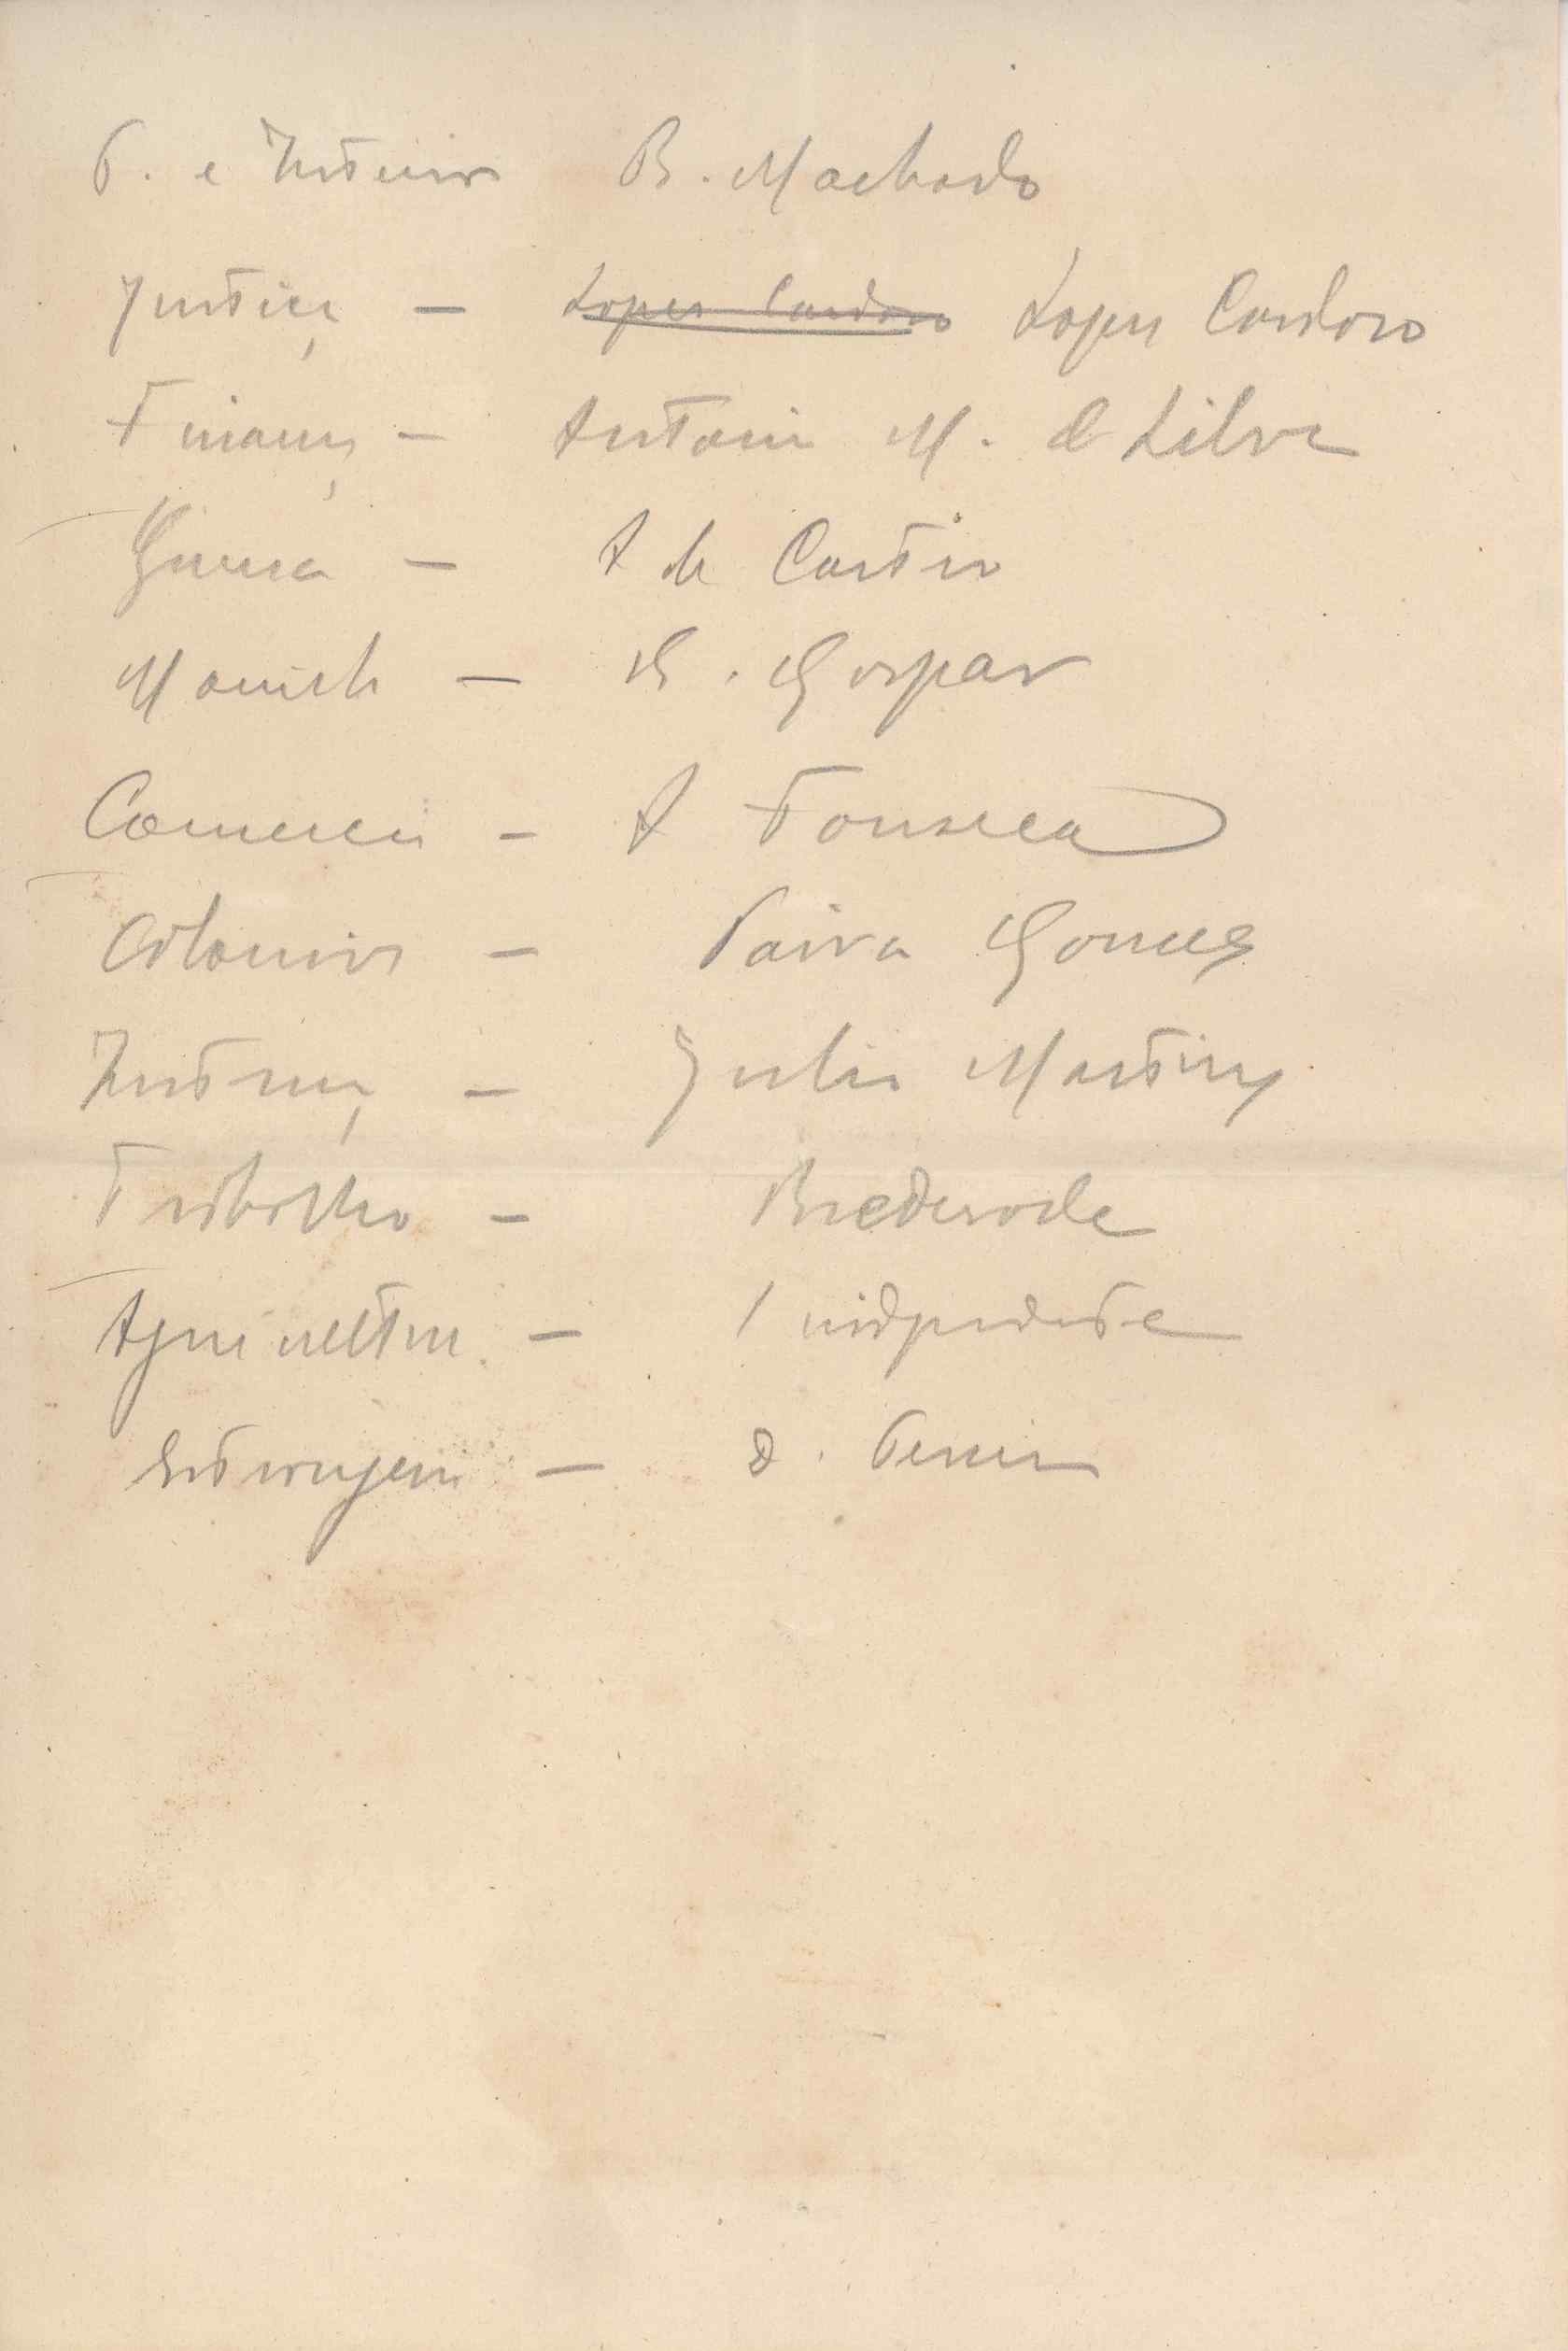 P. e Interior B. Machado
Justiça – Lopes Cardoso Lopes Cardoso
Finanças – Antonio M. da Silva
Guerra – A de Castro
Marinha – G. Gaspar
Comercio – A Fonseca
Colonias – Paiva Gomes
Instrução – Julio Martins
Trabalho – Brederode
Agricultura – 1 independente
Estrangeiros – D. Pereira